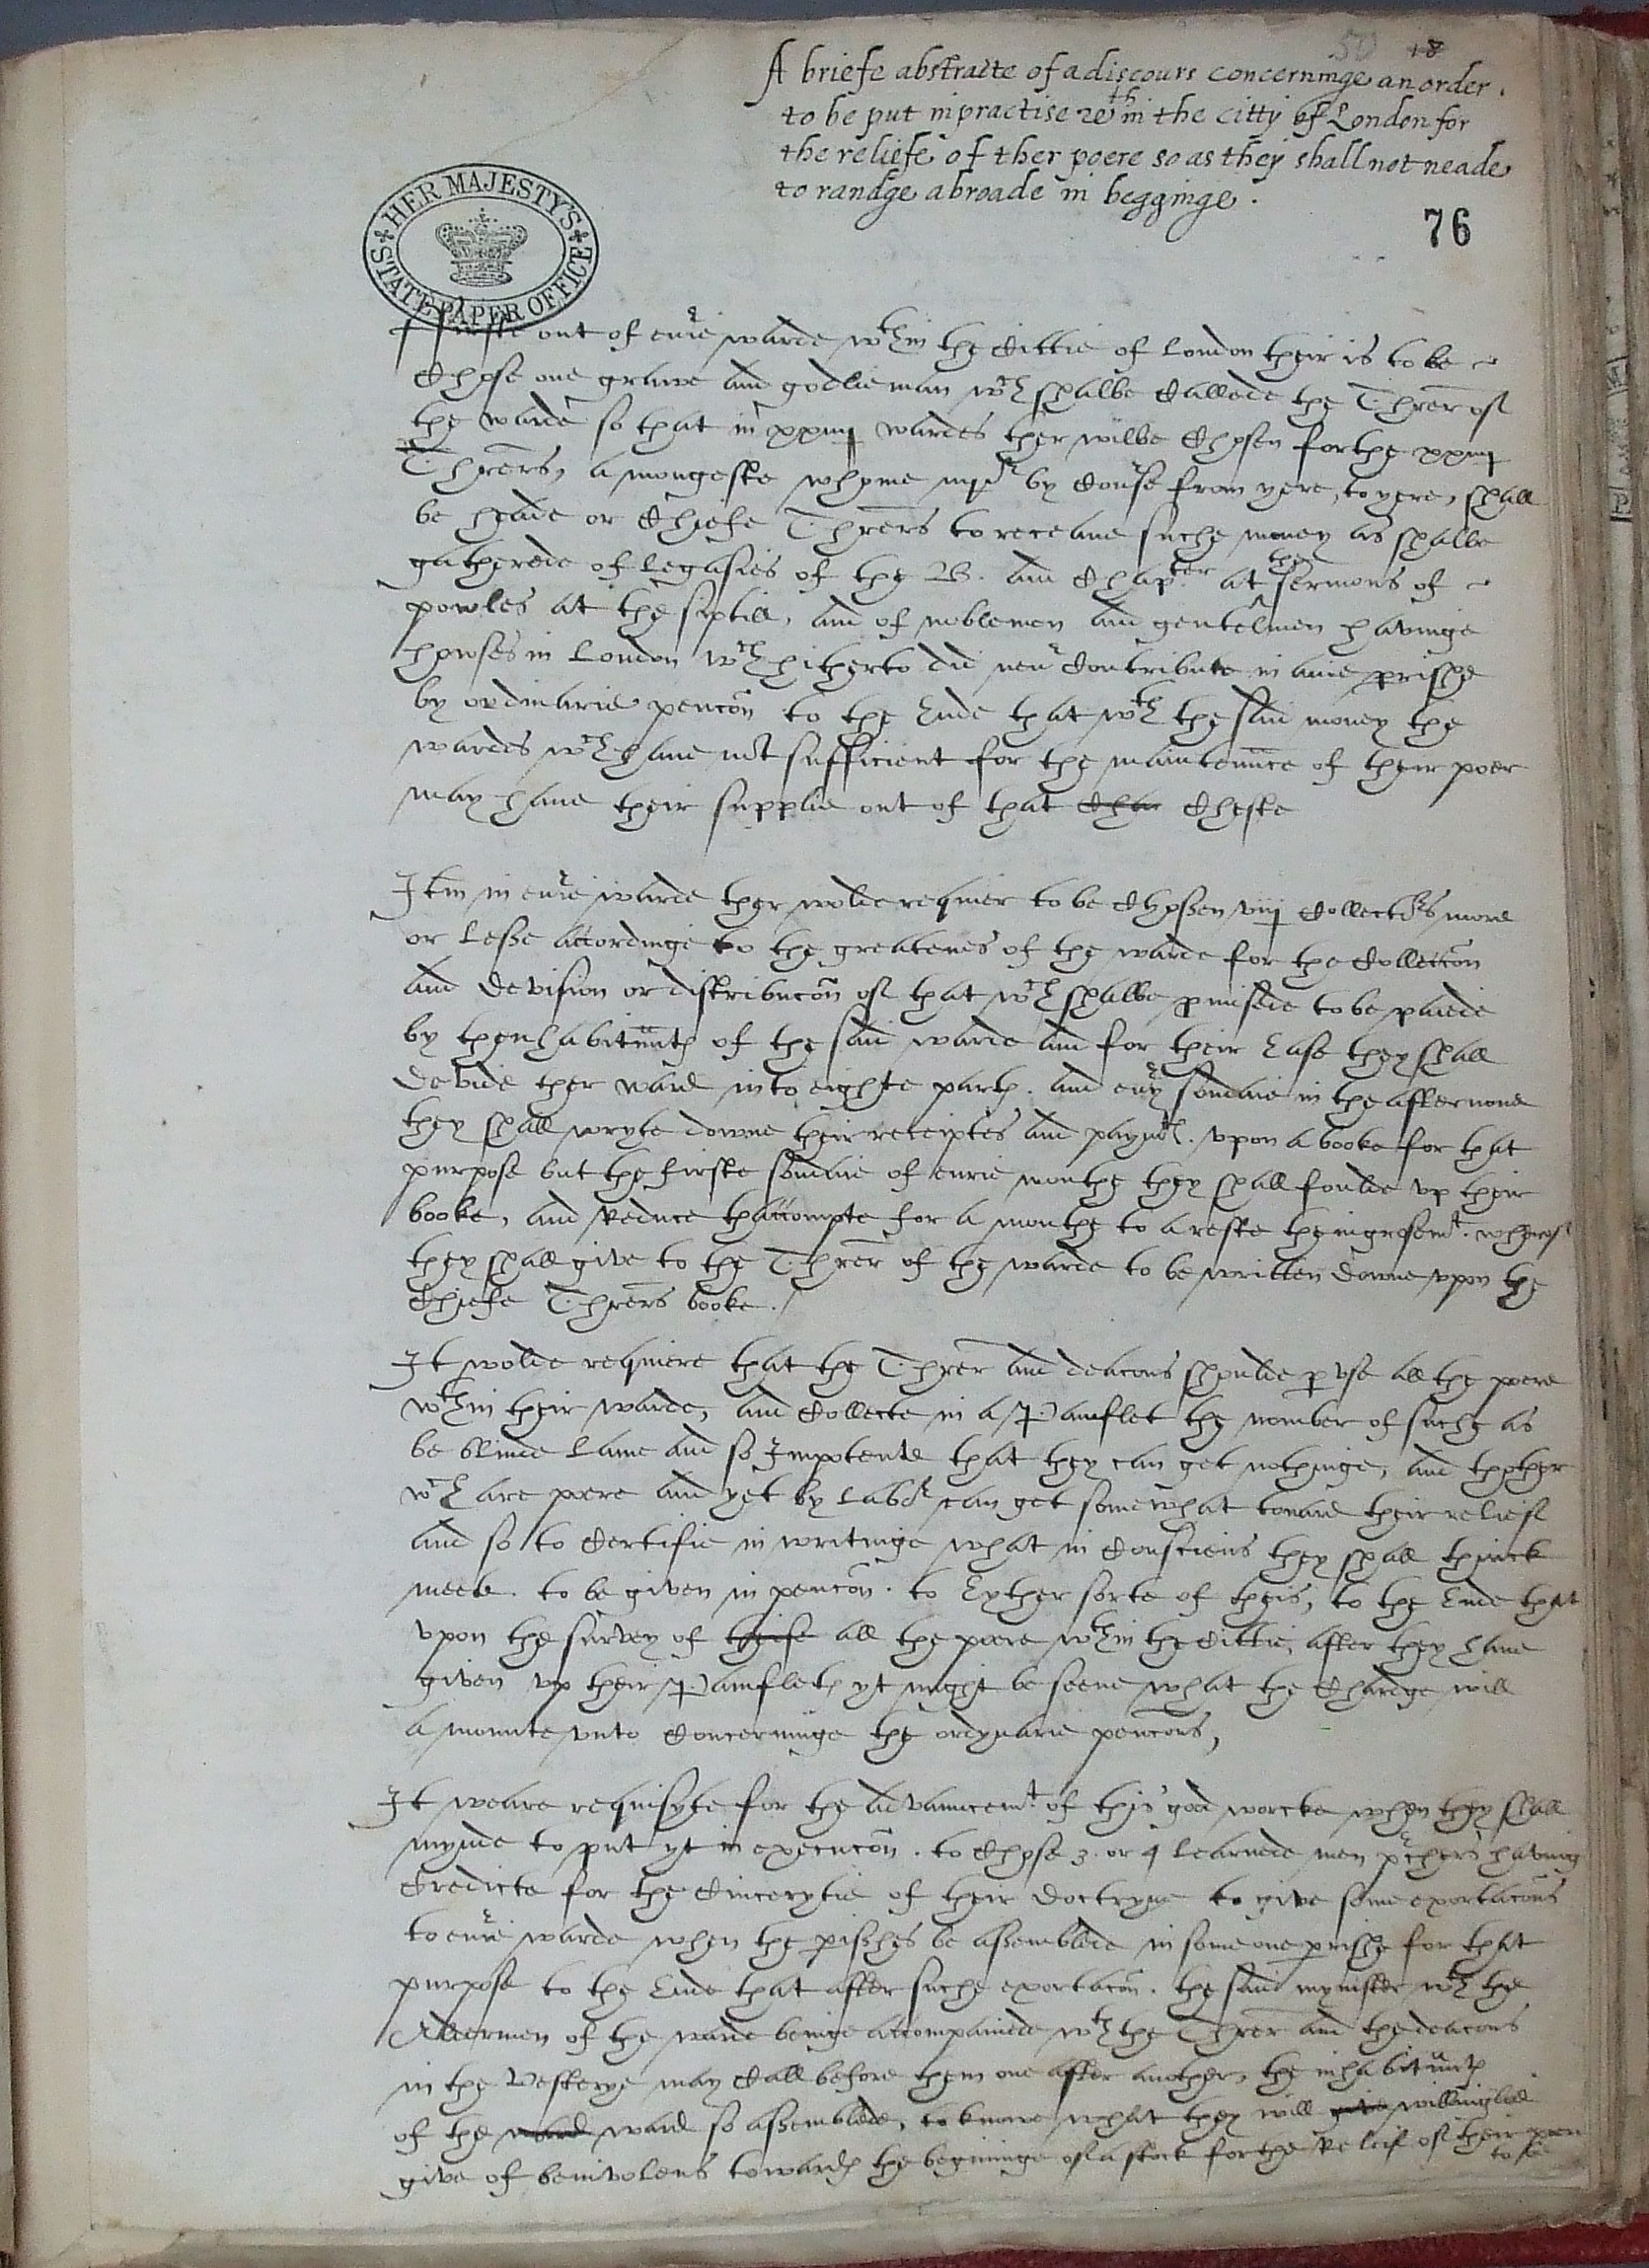 50 18
A briefe abstracte of a discours concerninge an order
to be put in practise wth in the citty of London for
the reliefe of ther poere so as they shall not neade
to randge abroade in begginge.
76
HER MAJESTY'S STATE PAPER OFFICE
Firste out of euie warde wthin the Cittie of London their is to be
Chose one graue and godlie man wch shalbe Callede the Threr of
the warde so that in xxvi wardes ther wilbe Chosen forthe
Thrers, amongeste whome by Course from yere, to yere, shall
be heade or Chiefe Thrers to receaue suche money as shalbe
gatherede of legasies of the B. and Chapter at the sermons of
powles at the , and of noblemen and gentelmen havinge
howses in London wch hitherto did neu Contribute in anie prishe
by ordinarie pencon to the Ende that wth the said money the
wardes wch haue not sufficient for the maintennce of their poer
may haue their supplie out of that Cheste
Itm in euie warde ther wolde requier to be Chossen viij Collectors more
or lesse accordinge to the greatenes of the warde for the Colleccon
and devision or distribucon of that wch shalbe pmisede to be paiede
by thenhabitnntes of the said warde and for their Ease they shall
devide ther ward into eighte partes. and euy sondaie in the afternone
they shall wryte downe their receiptes and paymtes. vpon a booke for that
purpose but the firste sondaie of eurie monthe they shall foulde vp their
booke, and Reduce thaccompte for a monthe to a reste the ingrosemt. wherof
they shall give to the Threr of the warde to be written downe vpon the
Chiefe Thrers booke./
It wolde requiere that the Threr and deacons shoulde pvse all the poere
wthin their warde, and Collecte in a Pamflet the nomber of suche as
be blinde lame and so Impotente that they can get nothinge, and thother
wch are poere and yet by labor can get somewhat toward their relief
and so to Certifie in writinge what in Consciens they shall thinck
meete. to be given in pencon. to Eyther sorte of theis, to the Ende that
vpon the survey of theise all the poere wthin the Cittie, after they haue
given vp their Pamfletes yt might be seene what the Chardge will
amounte vnto Concerninge the ordynarie pencons,
It weare requisyte for the advauncemt. of this god worcke when they shall
mynde to put yt in execucon. to Chose 3. or 4 learnede men pchers having
Credicte for the Cincerytie of their doctryne to give some exortacons
to euie warde when the pishes be assemblede in some one prishe for that
purpose to the Ende that after suche exortacon. the said mynister wth the
Aldermen of the warde beinge accompaniede wth the Threr and the deacons
in the Vesterye may Call before them one after another, the inhabitnntes
of the ward ward so assemblede, to knowe what they will give willinglie
give of benivolens towardes the beginninge of a stock for the Relief of their poere
to se